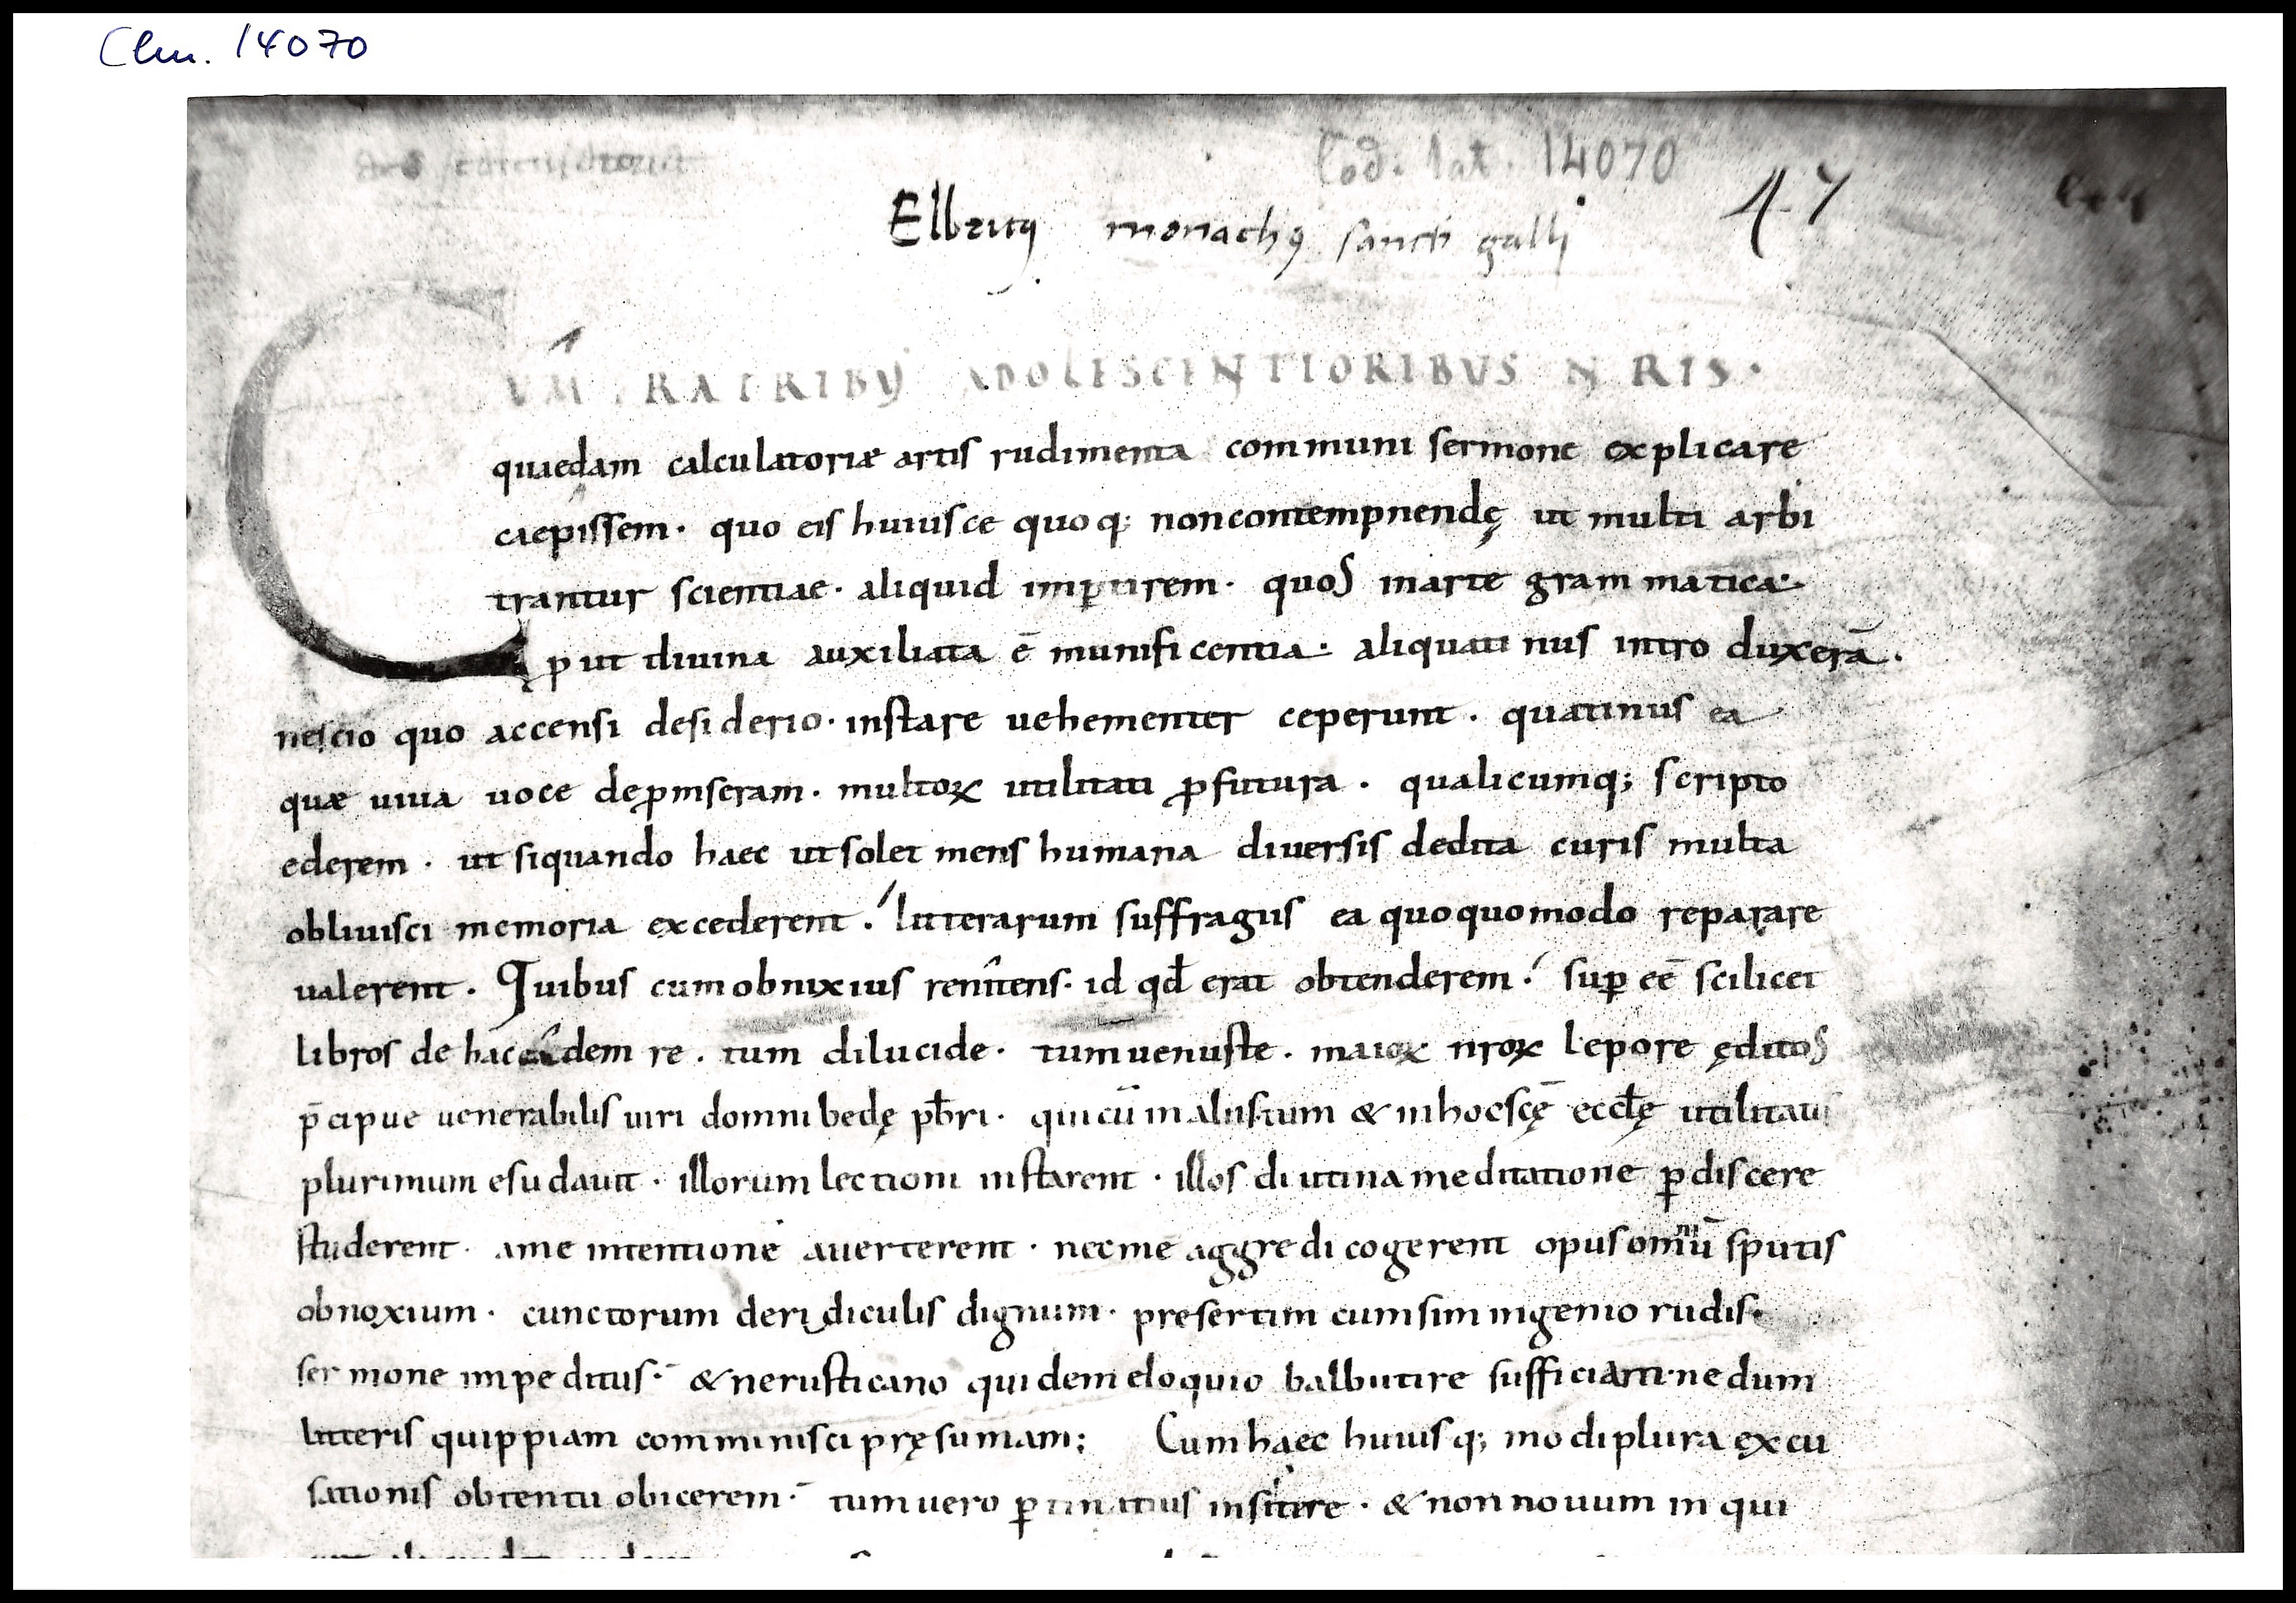 Clm. 14070
Cod. lat. 14070
Elbricꝰ monachꝰ sancti galli
47
CVM FRATRIBVꝰ ADOLESCENTIORIBVS NRIS·
quaedam calculatoriæ artis rudimenta communi sermone explicare
caepissem· quo eis huiusce quoq; non contempnendę ut multi arbi
trantur scientiae· aliquid imꝑtirem· quos in arte grammatica·
ꝓut diuina auxiliata ē munificentia· aliquatinus introduxerā·
nescio quo accensi desiderio· instare uehementer ceperunt· quatinus ea
quæ uiua uoce deprompseram· multoꝝ utilitati ꝓfutura· qualicumq; scripto
ederem· ut siquando haec ut solet mens humana diuersis dedita curis multa
obliuisci memoria excederent· litterarum suffragiis ea quoquomodo reparare
ualerent· Quibus cum obnixius renitens· id qđ erat obtenderem· suꝑ eē scilicet
libros de hac eadem re· tum dilucide· tum uenuste· maioꝝ nroꝝ lepore ęditos
p̄cipue uenerabilis uiri domni bedę pƀri· qui cū in aliis tum & in hoc scę̄ eccłę utilitatis
plurimum esudauit· illorum lectioni instarent· illos diutina meditatione ꝑdiscere
studerent· a me intentione auerterent· nec me aggredi cogerent opus omniū sputis
obnoxium· cunctorum deridiculis dignum· presertim cum sim ingenio rudis·
sermone impeditus· & ne rusticano quidem eloquio balbutire sufficiam· nedum
litteris quippiam comminisci pręsumam; Cum haec huiusq; modi plura excu
sationis obtentu obicerem· tum uero ꝑtinatius insistere· & non nouum in qui